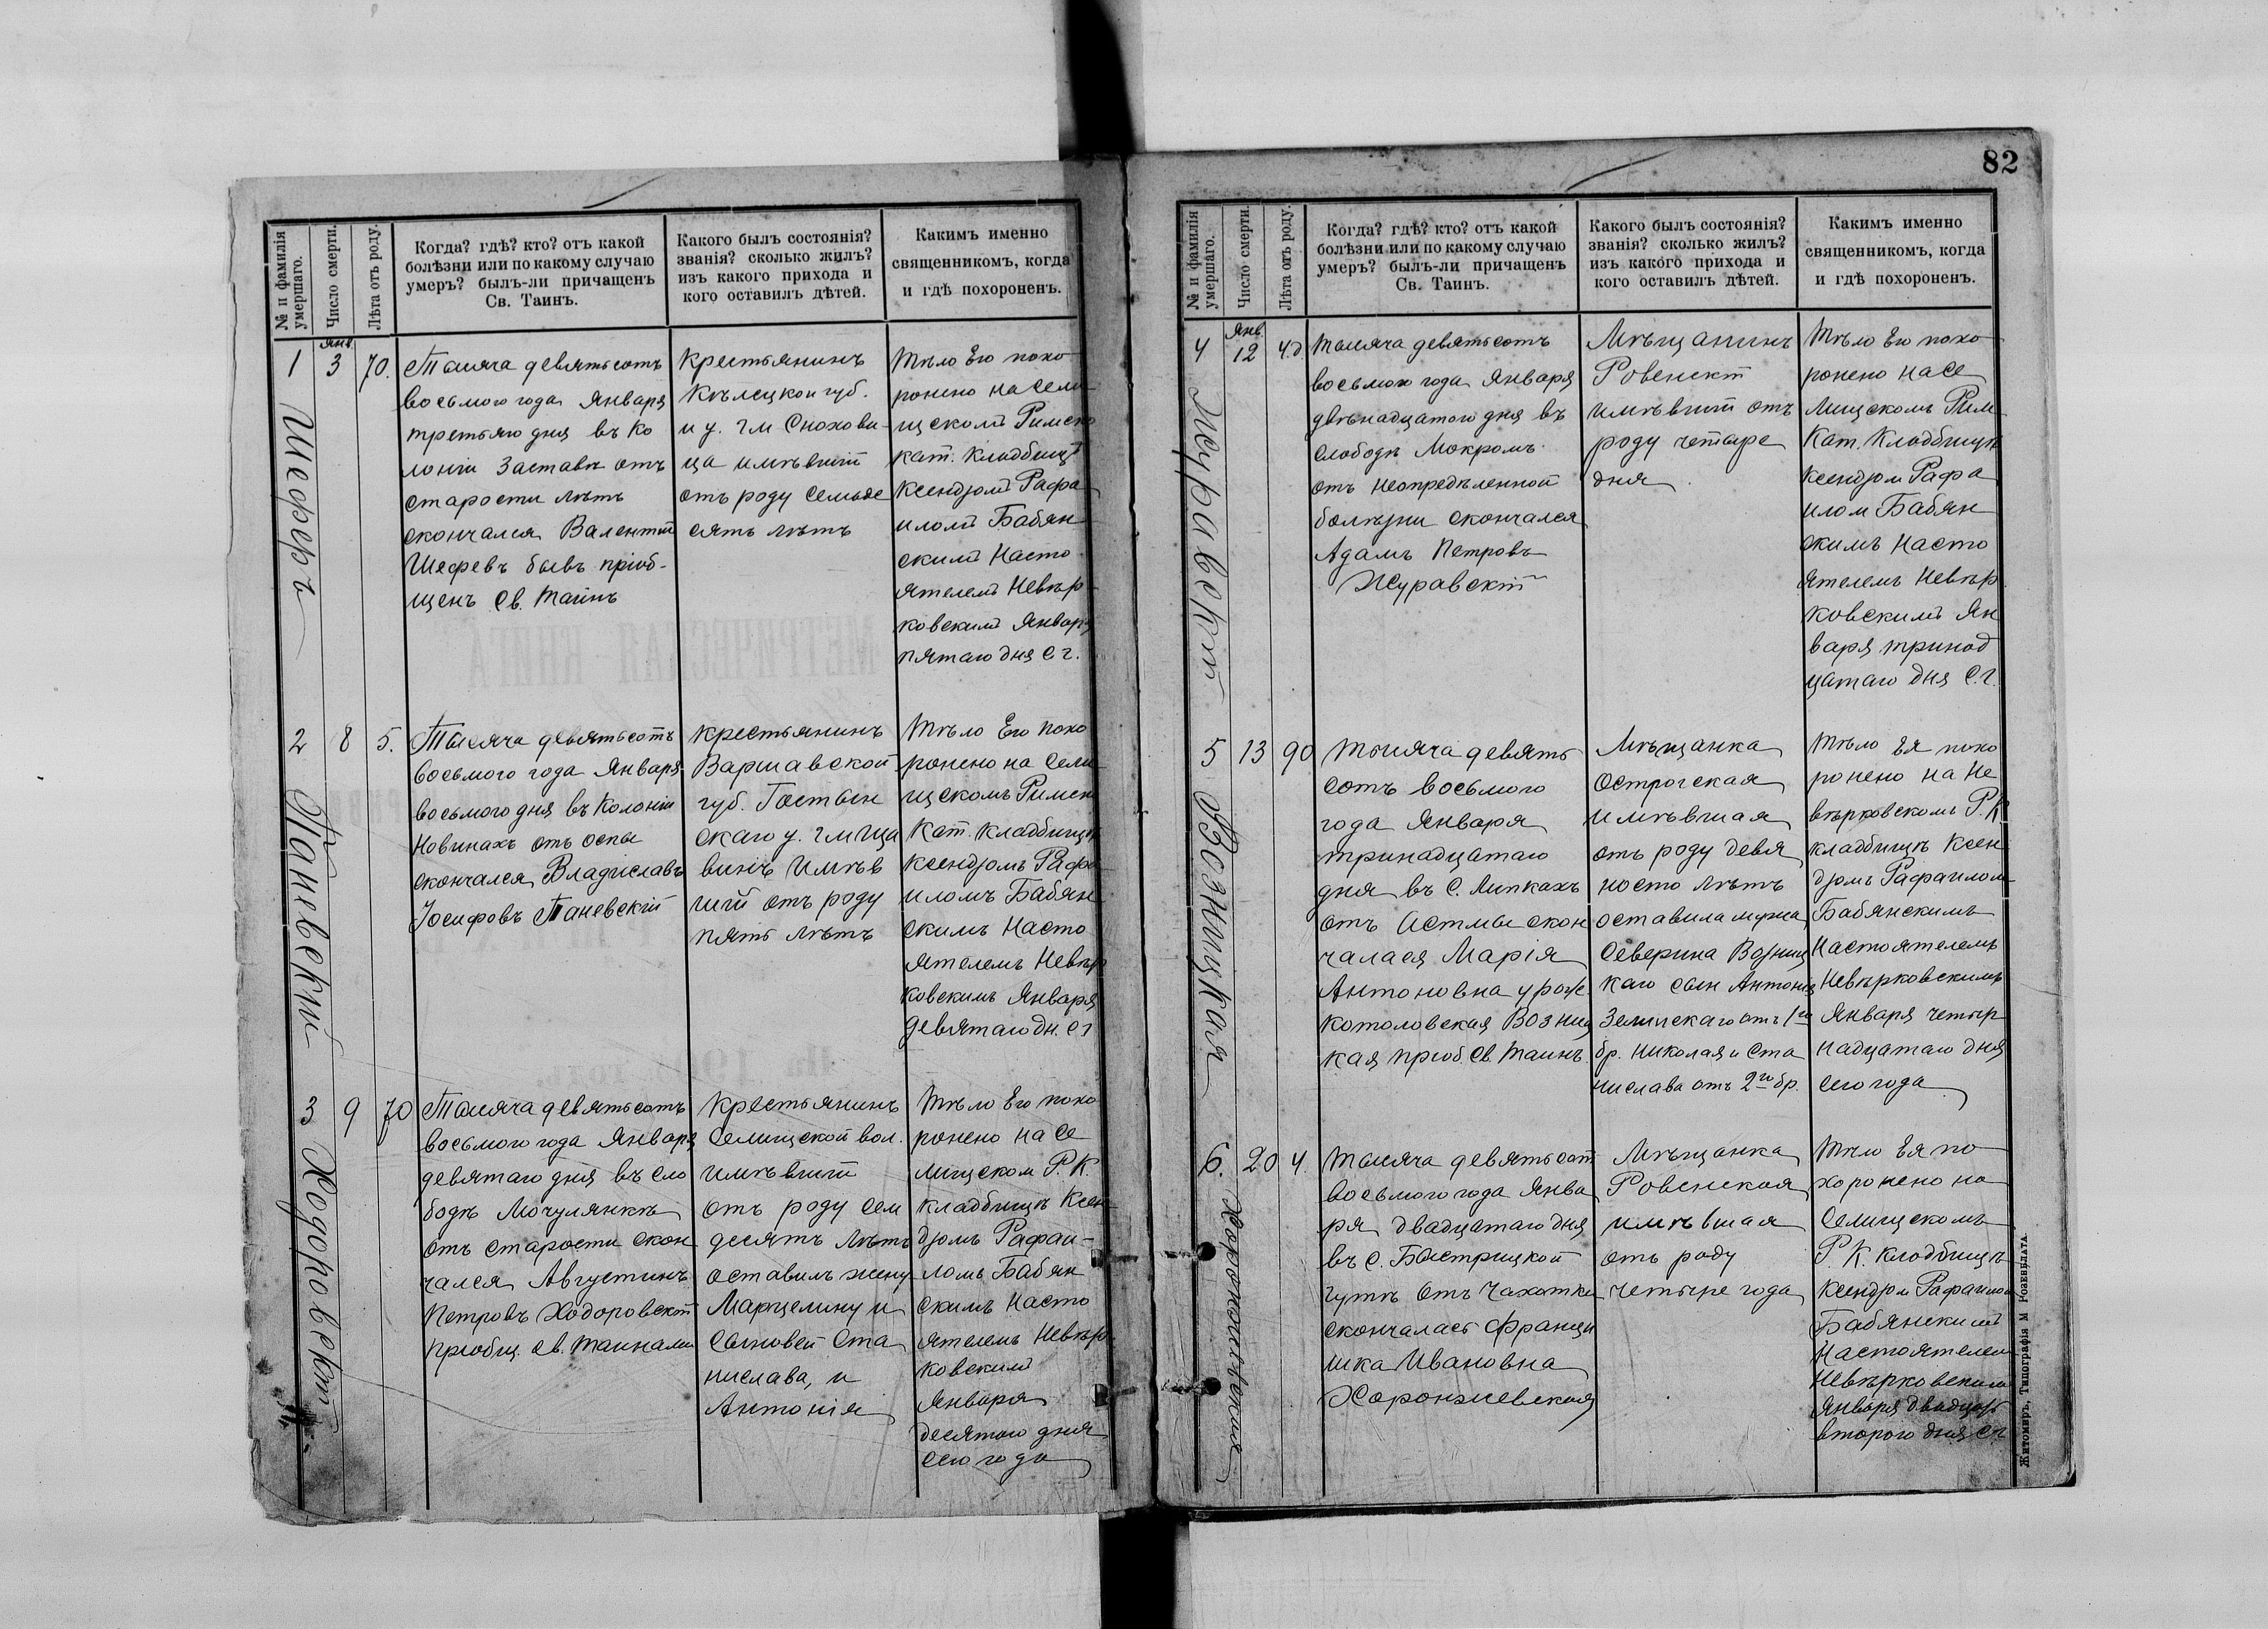 82
№ и фамилія умершаго.
Число смерти.
Лѣта отъ роду.
Когда? гдѣ? кто? отъ какой
болѣзни или по какому случаю
умеръ? былъ-ли причащенъ
Св. Таинъ.
Какого былъ состоянія?
званія? сколько жилъ?
изъ какого прихода и
кого оставилъ дѣтей.
Какимъ именно
священникомъ, когда
и гдѣ похороненъ.
1
Янв.
3
70.
Тысяча девятьсотъ
восьмого года Января
третьяго дня въ Ко
лоніи Заставѣ отъ
старости лѣтъ
скончался Валентій
Шефевъ бывъ пріоб-
щенъ Св. Таинъ
Крестьянинъ
Кѣлецкой губ.
и у. гм
ца имѣвшій
отъ роду семьде
сятъ лѣтъ
Тѣло Его похо
ронено на Сели
щскомъ Римско
Кат. Кладбищѣ
Ксендзомъ Рафа
иломъ Бабян
скимъ Насто
ятелемъ Невѣр
ковскимъ Января
пятаго дня с г.
2
8
5.
Паневскій
Тысяча девятьсотъ
восьмого года Января
восьмого дня въ Колоніи
Новинахъ отъ оспы
скончался Владиславъ
Іосифовъ Паневскій
крестьянинъ
Варшавской
губ. Гостын
скаго у. гм Ща
винъ Имѣв
шій отъ роду
пять лѣтъ
Тѣло Его похо
ронено на Сели
щскомъ Римско
Кат. кладбищѣ
Ксендзомъ Рафа
иломъ Бабян
скимъ Насто
ятелемъ Невѣр
ковскимъ Января
девятаго дн. с г
3
9
70
Ходоровскій
Тысяча девятьсотъ
восьмого года Января
девятаго дня въ сло
бодѣ Мочулянкѣ
отъ старости скон
чался Августинъ
Петровъ Ходоровскій
пріобщ. Св. Таинами
Крестьянинъ
Селищской вол.
имѣвшій
отъ роду сем
десятъ лѣтъ
оставилъ жену
Марцелину и
сыновей Ста
нислава, и
Антонія
Тѣло Его похо
ронено на Се
лищском Р. К.
кладбищѣ Ксен
дзомъ Рафаи-
ломъ Бабян
скимъ Насто
ятелемъ Невѣр
ковскимъ
Января
десятаго дня
сего года
№ и фамилія умершаго.
Число смерти.
Лѣта отъ роду.
Когда? гдѣ? кто? отъ какой
болѣзни или по какому случаю
умеръ? былъ-ли причащенъ
Св. Таинъ.
Какого былъ состоянія?
званія? сколько жилъ?
изъ какого прихода и
кого оставилъ дѣтей.
Какимъ именно
священникомъ, когда
и гдѣ похороненъ.
4
Янв.
12
4.д
Журавскій
Тысяча девятьсотъ
восьмого года Января
двѣнадцатаго дня въ
слободѣ Мокромъ
отъ неопредѣленной
болѣзни скончался
Адамъ Петровъ
Журавскій
Мѣщанинъ
Ровенскій
имѣвшій отъ
роду четыре
дня
Тѣло Его похо
ронено на Се
лищскомъ Рим
Кат. Кладбищѣ
Ксендзом Рафа
илом Бабян
скимъ Насто
ятелемъ Невѣр
ковскимъ Ян
варя тринад
цатаго дня с.г.
5
13
90
Возницкая
Тысяча девять
сотъ восьмого
года Января
тринадцатаго
дня въ С. Липкахъ
отъ Астмы скон
чалася Марія
Антоновна урож.
Котоловская Возниц
кая пріоб. Св. Таинъ.
Мѣщанка
Острогская
имѣвшая
отъ роду девя
носто лѣтъ
оставила мужа
Северина Возниц
каго сын Антонія
отъ 1го
бр. Николая и Ста
нислава отъ 2го бр.
Тѣло Ея похо
ронено на Не
вѣрковскомъ Р. К
кладбищѣ Ксен
дзомъ Рафаилом
Бабянскимъ
Настоятелемъ
Невѣрковскимъ
Января четыр
надцатаго дня
сего года
6.
20
4.
Тысяча девятьсот
восьмого года Янва
ря двадцатаго дня
въ с. Быстрицкой
Гутѣ отъ Чахотки
скончалась Францы
шка Ивановна
Хоронжевская
Мѣщанка
Ровенская
имѣвшая
отъ роду
четыре года
Тѣло Ея по
хоронено на
Селищскомъ
Р. К. кладбищѣ
Ксендзм Рафаилом
Бабянскимъ
Настоятелем
Невѣрковским
Января двадцать
второго дня с г
Житомиръ, Типографія М Розенблата.